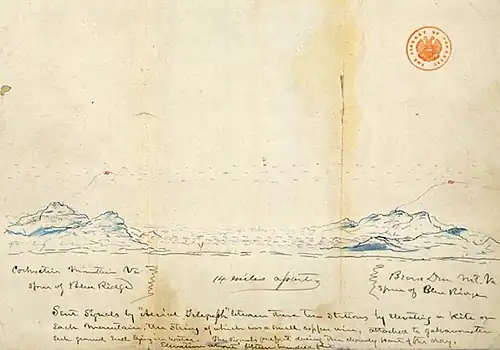 THE LIBRARY OF CONGRESS
Cochocton Mountain Va
spur of Blue Ridge
14 miles apart
Bears Den Mt. Va
spur of Blue Ridge
Sent Signals by "Aerial Telegraph" between these two Stations by elevating a Kite on
each Mountain, the string of which was a small copper wire, attached to galvanometer
each ground reel lying in water. The signals perfect during the cloudy hours of the day.
Elevation about fifteen hundred feet